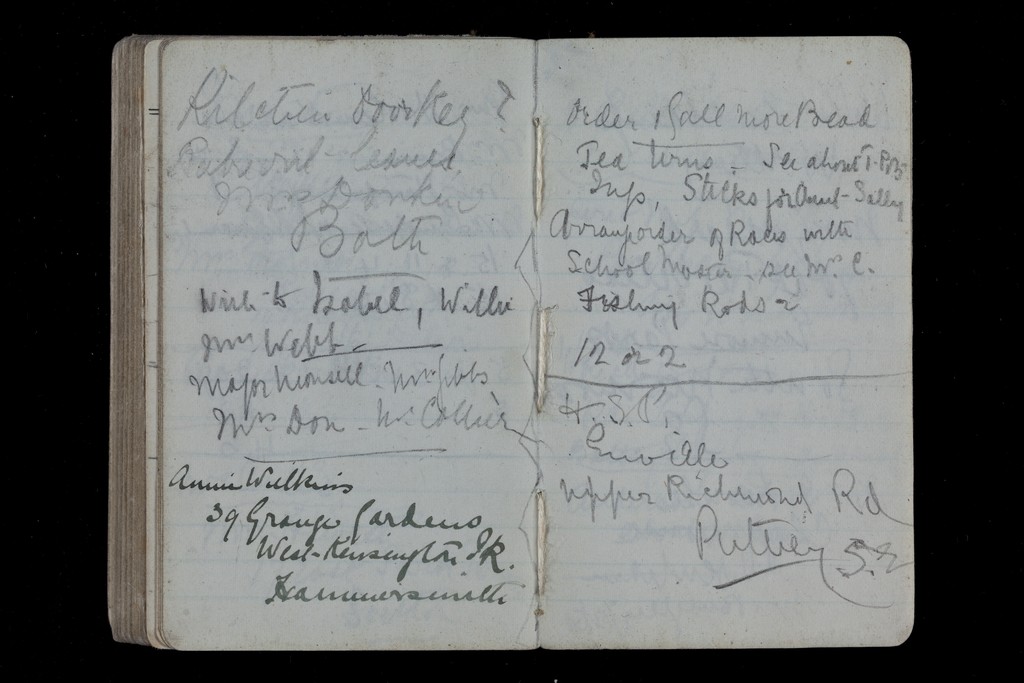 Kitchen Door Key ?
leaves
Mrs Donkin
Bath
Write to Isabel, Willie
Mrs Webb
Major Monsell - Mrs Gibbs
Mrs Don - Mr Collier
Annie Wilkins
39 Grange Gardens
West-Kensington Pk.
Hammersmith
Order 1 Gall More Bead
Tea Urns - See about T. Pots
Jugs, Sticks for Aunt-Sally
Arrange order of Races with
School Master - see Mr C.
Fishing Rods 2
12 or 2
H. S. P.
Enville
Upper Richmond Rd
Putney S.E